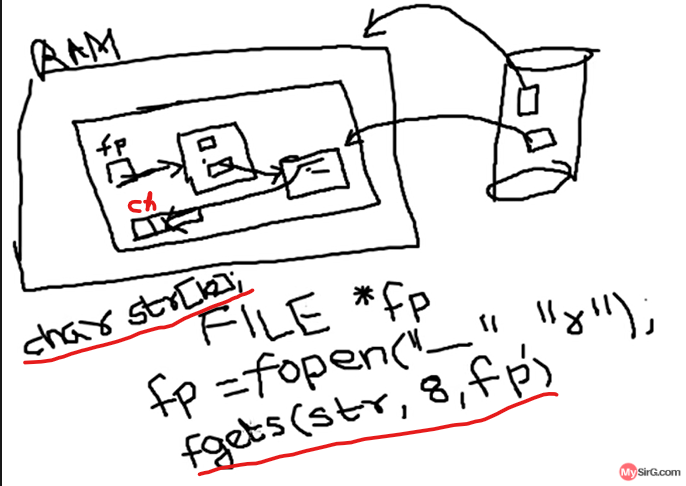 RAM
fp
ch
char str[10];
FILE *fp
fp = fopen("__", "r");
fgets(str, 8, fp)
MySirG.com